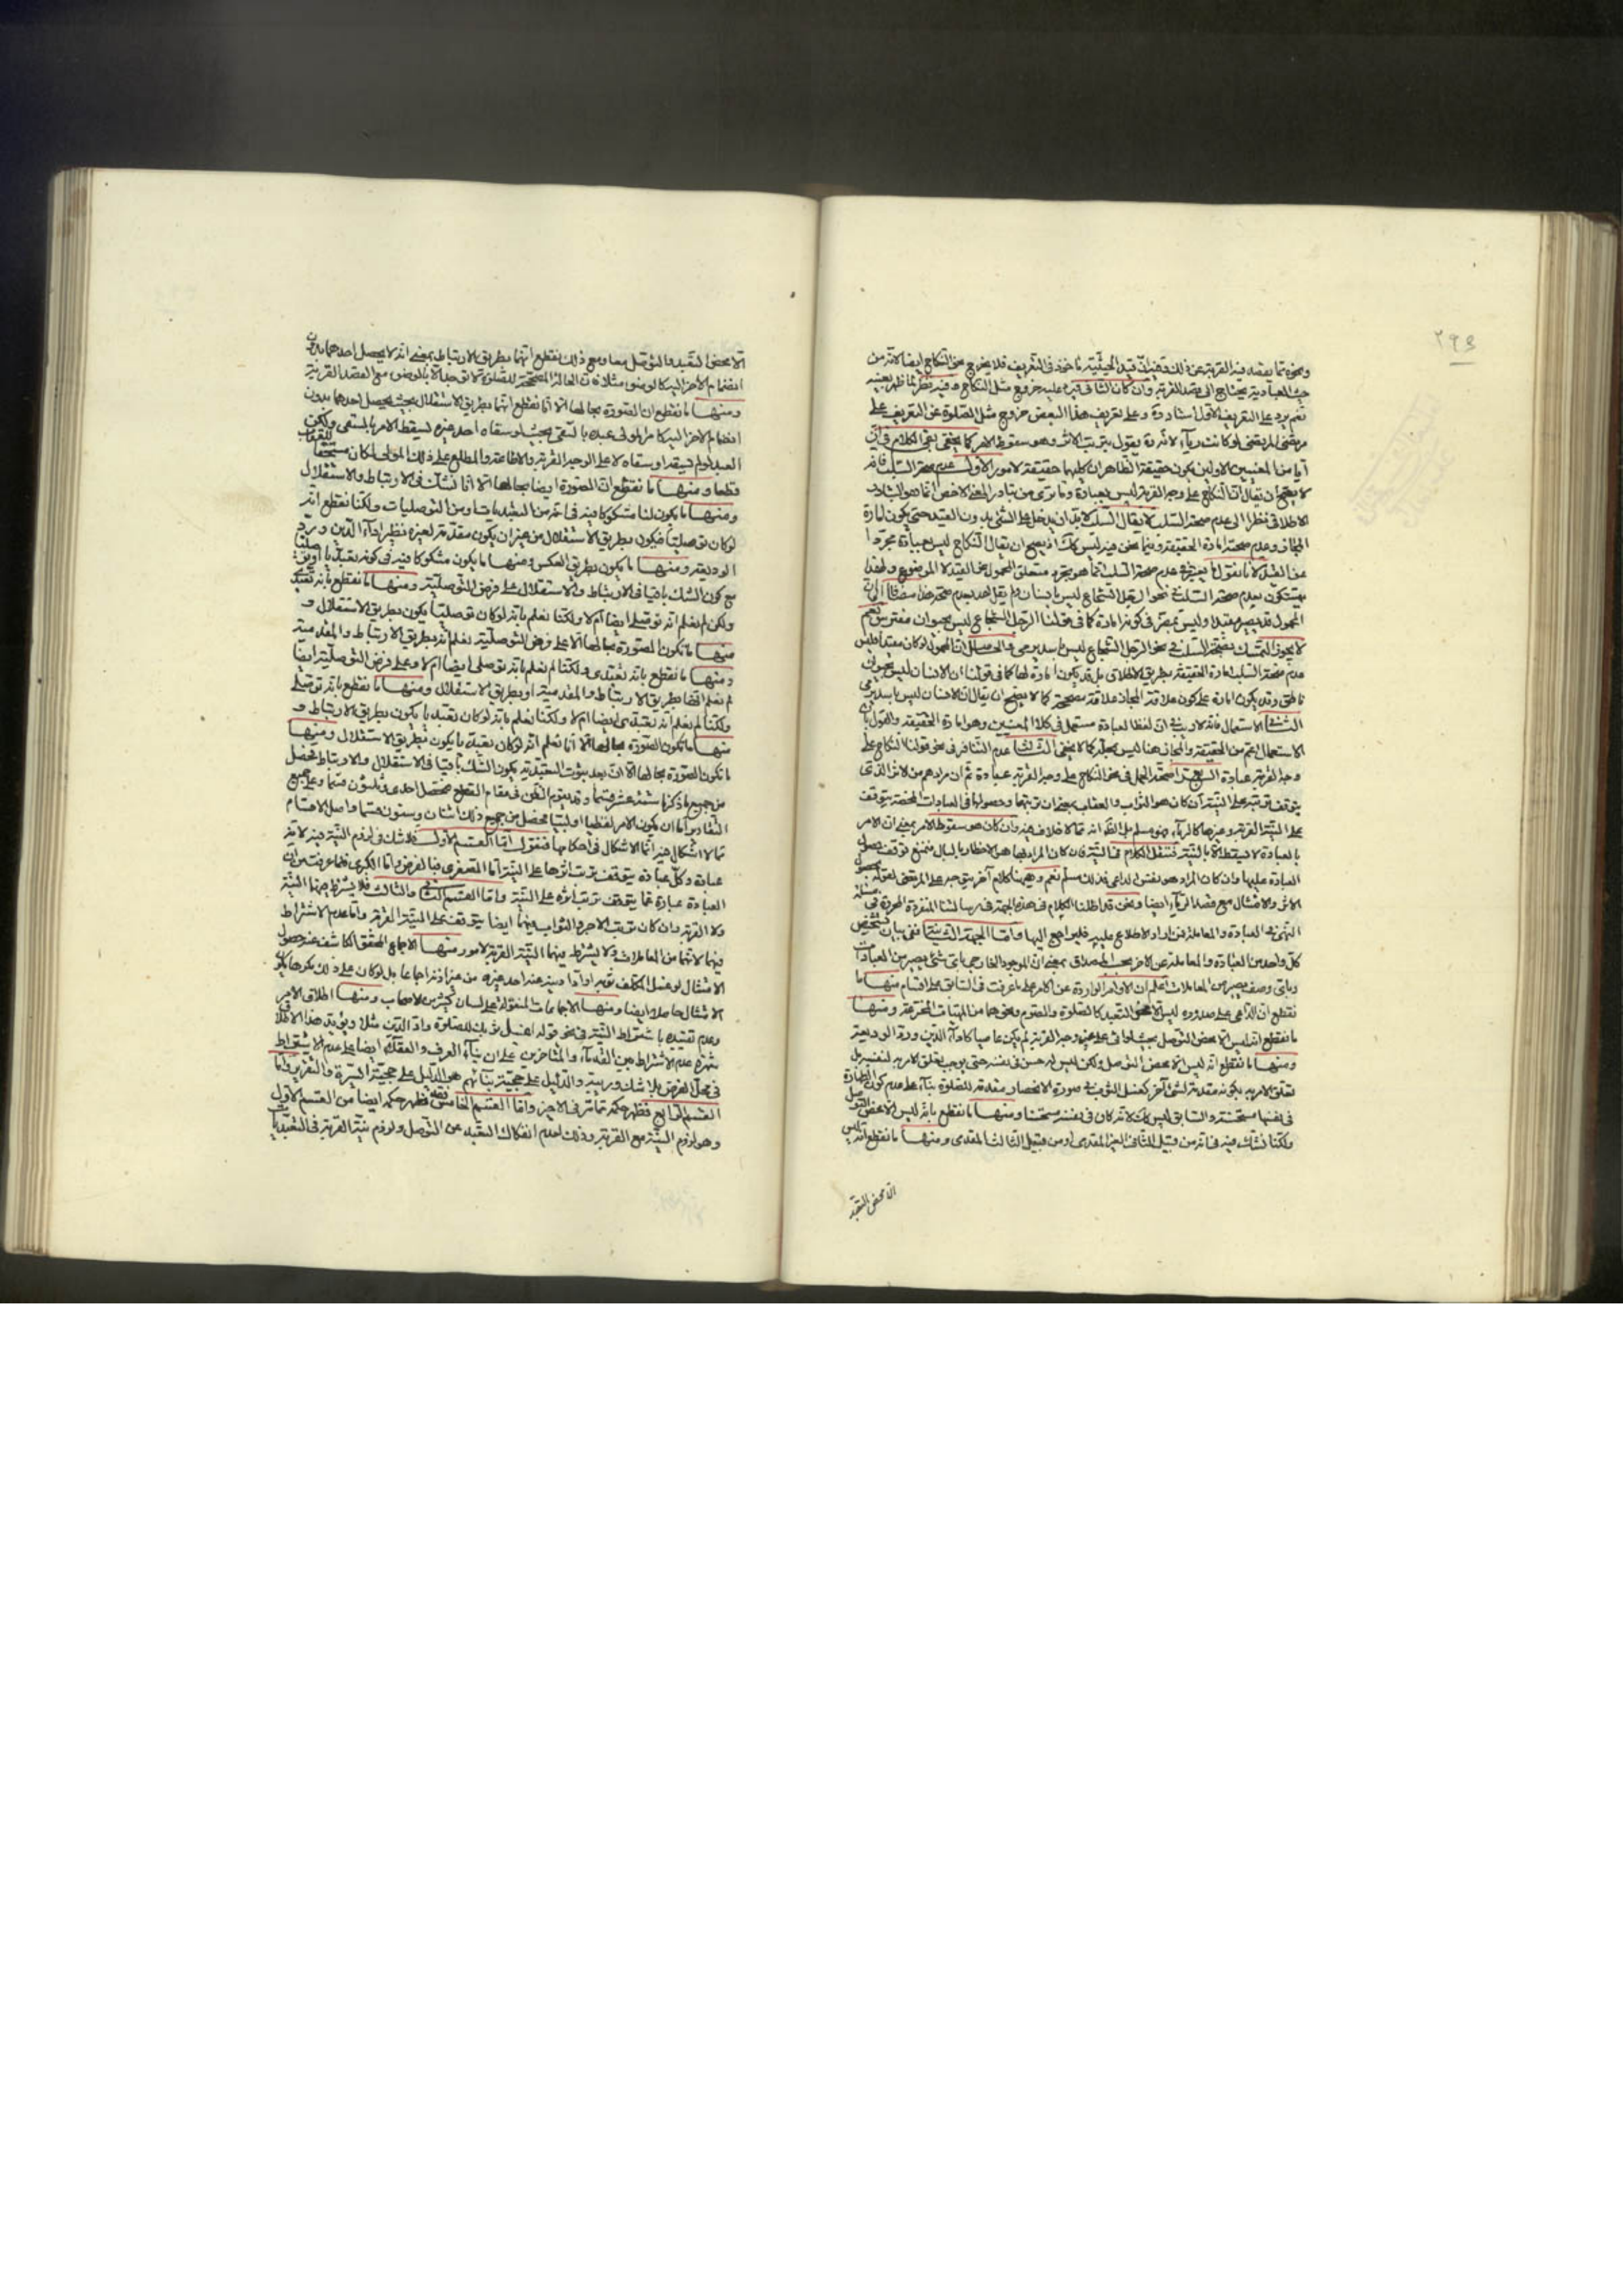 ٢٩٣
ونحوه مما يقصد فيه القربة عن ذلك وفيه ان قيد الحيثية ماخوذ في التعريف فلا يخرج نحو النكاح ايضا لانه من
حيث العبادية يحتاج الى قصد القربة وان كان الثاني فيرد عليه خروج مثل النكاح وفيه نظر لما ظهر بعينه
نعم يرد على التعريف الاول وعلى تعريف هذا البعض خروج مثل الصلوة عن التعريف على
مرتضى المرتضى لو كانت رياء لانه يقول بترتب الاثر وهو سقوط الامر كما لا يخفى بقى الكلام في ان
ايا من المعنيين الاولين يكون حقيقة الظاهر ان كليهما حقيقة لامور الاول عدم صحة السلب فانه
لا يصح ان يقال ان النكاح على وجه القربة ليس بعبادة وما ترى من تبادر المعنى الاخص انما هو التبادر
الاطلاقي نظرا الى عدم صحة السلب لا يقال السلب لابد ان يدخل على الشئ بدون القيد حتى يكون امارة
المجاز وعدم صحته امارة الحقيقة وفيما نحن فيه ليس كك اذ يصح ان يقال النكاح ليس بعبادة مجردا
عن القيد لانا نقول المعتبر في عدم صحة السلب انما هو تجرد متعلق المحمول عن القيد لا الموضوع ولهذا
يتمسكون بعدم صحة السلب في نحو الرجل الشجاع ليس بانسان ولم يقل احد بعدم صحته
المحمول قد يصير مقيدا وليس بمضر في كونه امارة كما في قولنا الرجل الشجاع ليس بحيوان مفترس نعم
لا يجوز التمسك بصحة السلب في نحو الرجل الشجاع ليس باسد يرمى والحاصل ان المحمول لو كان مقيدا فليس
عدم صحة السلب امارة الحقيقة بطريق الاطلاق بل قد يكون امارة لها كما في قولنا ان الانسان ليس بحيوان
ناطق وقد يكون امارة على كون علاقة المجاز علاقة مصححة كما لا يصح ان يقال ان الانسان ليس باسد يرمى
الثاني الاستعمال فانه لا ريب في ان لفظ العبادة مستعمل في كلا المعنيين وهو امارة الحقيقة والقول بان
الاستعمال اعم من الحقيقة والمجاز هنا ليس بجيد كما لا يخفى الثالث عدم التنافر في نحو قولنا النكاح على
وجه القربة عبادة الرابع صحة الحمل في نحو النكاح على وجه القربة عبادة ثم ان مرادهم من الاثر الذي
يتوقف ترتبه على النية ان كان هو الثواب والعقاب بمعنى ان ترتبهما وحصولهما في العبادات المحضة يتوقف
على النية القربة وغيرها كالرياء فهو مسلم بل الظ انه مما لا خلاف فيه وان كان هو سقوط الامر بمعنى ان الامر
بالعبادة لا يسقط الا بالنية فننقل الكلام في النية فان كان المراد بها هو الاخطار بالبال فنمنع توقف حصول
العبادة عليها وان كان المراد هو نفس الداعى فذلك مسلم نعم وههنا كلام آخر يتوجه على المرتضى لقوله بحصول
الاثر والامتثال مع قصد الرياء ايضا ونحن قد اطلنا الكلام في هذه الجهة في رسالتنا المنفردة المحررة في مسئلة
النهى في العبادة والمعاملة فمن اراد الاطلاع عليه فليراجع اليها واما الجهة الثانية ففي بيان تشخيص
كل واحد من العبادة والمعاملة عن الاخر بحسب المصداق بمعنى ان الموجود الخارجى باى شئ يصير من العبادات
وباى وصف يصير من المعاملات اعلم ان الاوامر الواردة عن الامر على ما عرفت في السابق على اقسام منها ما
نقطع ان الداعى على صدوره ليس الا محض التعبد كالصلوة والصوم ونحوهما من المهيات المخترعة ومنها
ما نقطع انه ليس الا محض التوصل بحيث لو اتى على غير وجه القربة لم يكن عاصيا كاداء الدين ورد الوديعة
ومنها ما نقطع انه ليس الا محض التوصل ولكن ليس له حسن في نفسه حتى يوجب تعلق الامر به لنفسه بل
تعلق الامر به بكونه مقدمة لشئ آخر كغسل الثوب في صورة الانحصار مقدمة للصلوة بناء على عدم كون الطهارة
في نفسها مستحسنة والسابق ليس كك لانه كان في نفسه مستحسنا ومنها ما نقطع بانه ليس الا محض التوصل
ولكنا نشك فيه في انه من قبيل الثاني الغير المقدمى او من قبيل الثالث المقدمى ومنها ما نقطع انه ليس
الا محض التعبد
الا محض التعبد والتوصل معا ومع ذلك نقطع انهما بطريق الارتباط بمعنى انه لا يحصل احدهما بدون
انضمام الاخر اليه كالوضوء مثلا فان الحالة المصححة للصلوة لا توجد الا بالوضوء مع القصد القربة
ومنها ما نقطع ان الصورة بحالها الا انا نقطع انهما بطريق الاستقلال بحيث يحصل احدهما بدون
انضمام الاخر اليه كامر المولى عبده بالسقى بحيث لو سقاه احد غيره لسقط الامر بالسقى ولكن
العبد لو لم يسقه او سقاه لا على الوجه القربة والاطاعة والمطلع على ذلك المولى لكان مستحقا للعقاب
قطعا ومنها ما نقطع ان الصورة ايضا بحالها الا انا نشك في الارتباط والاستقلال
ومنها ما يكون لنا مشكوكا فيه في انه من التعبديات او من التوصليات ولكنا نقطع انه
لو كان توصليا فيكون بطريق الاستقلال من غير ان يكون مقدمة لغيره نظير اداء الدين ورد
الوديعة ومنها ما يكون بطريق العكس ومنها ما يكون مشكوكا فيه في كونه تعبديا او توصليا
مع كون الشك باقيا في الارتباط والاستقلال على فرض التوصلية ومنها ما نقطع بانه تعبدى
ولكن لم نعلم انه توصلى ايضا ام لا ولكنا نعلم بانه لو كان توصليا يكون بطريق الاستقلال و
منها ما تكون الصورة بحالها الا على فرض التوصلية نعلم انه بطريق الارتباط والمقدمية
ومنها ما نقطع بانه تعبدى ولكنا لم نعلم بانه توصلى ايضا ام لا وعلى فرض التوصلية ايضا
لم نعلم انها بطريق الارتباط والمقدمية او بطريق الاستقلال ومنها ما نقطع بانه توصلى
ولكنا لم نعلم انه تعبدى ايضا ام لا ولكنا نعلم بانه لو كان تعبديا يكون بطريق الارتباط و
منها ما تكون الصورة بحالها الا انا نعلم انه لو كان تعبديا يكون بطريق الاستقلال ومنها
ما تكون الصورة بحالها الا ان بعد ثبوت التعبدية يكون الشك باقيا في الاستقلال والارتباط فحصل
من جميع ما ذكرنا ستة عشر قسما وقد يقوم الظن في مقام القطع فتحصل احدى وثلثون قسما وعلى جميع
التقادير اما ان يكون الامر لفظيا او لبيا فحصل من جميع ذلك اثنان وستون قسما واصل الاقسام
مما لا اشكال فيه انما الاشكال في احكامها فنقول اما القسم الاول فلا شك في لزوم النية فيه لانه
عبادة وكل عبادة يتوقف ترتب اثرها على النية اما الصغرى فبالفرض واما الكبرى فلما عرفت من ان
العبادة عبارة عما يتوقف ترتب اثره على النية واما القسم الثاني والثالث فلا يشترط فيهما النية
ولا القربة وان كان ترتب الاجر والثواب فيهما ايضا يتوقف على النية القربة واما عدم الاشتراط
فيهما لانهما من المعاملات ولا يشترط فيهما النية القربة لامور منها الاجماع المحقق الكاشف عنه حصول
الامتثال لو غسل المكلف ثوبه او ادا دينه عنه احد غيره من غير اذنه اجماعا بل لو كان على ذلك مكرها يكون
الامتثال حاصلا ايضا ومنها الاجماعات المنقولة على لسان كثير من الاصحاب ومنها اطلاق الامر
وعدم تقييده باشتراط النية في نحو قوله اغسل ثوبك للصلوة واد الدين مثلا ويؤيد هذا الاطلاق
شهرة عدم الاشتراط بين القدماء والمتاخرين على ان بناء العرف والعقلاء ايضا على عدم الاشتراط
في محل الفرض بلا شك وريبة والدليل على حجية بنائهم هو الدليل على حجية السيرة والتقرير واما
القسم الرابع فظهر حكمه مما مر في الاخير واما القسم الخامس فظهر حكمه ايضا من القسم الاول
وهو لزوم النية مع القربة وذلك لعدم انفكاك التعبد عن التوصل ولزوم نية القربة في التعبديات